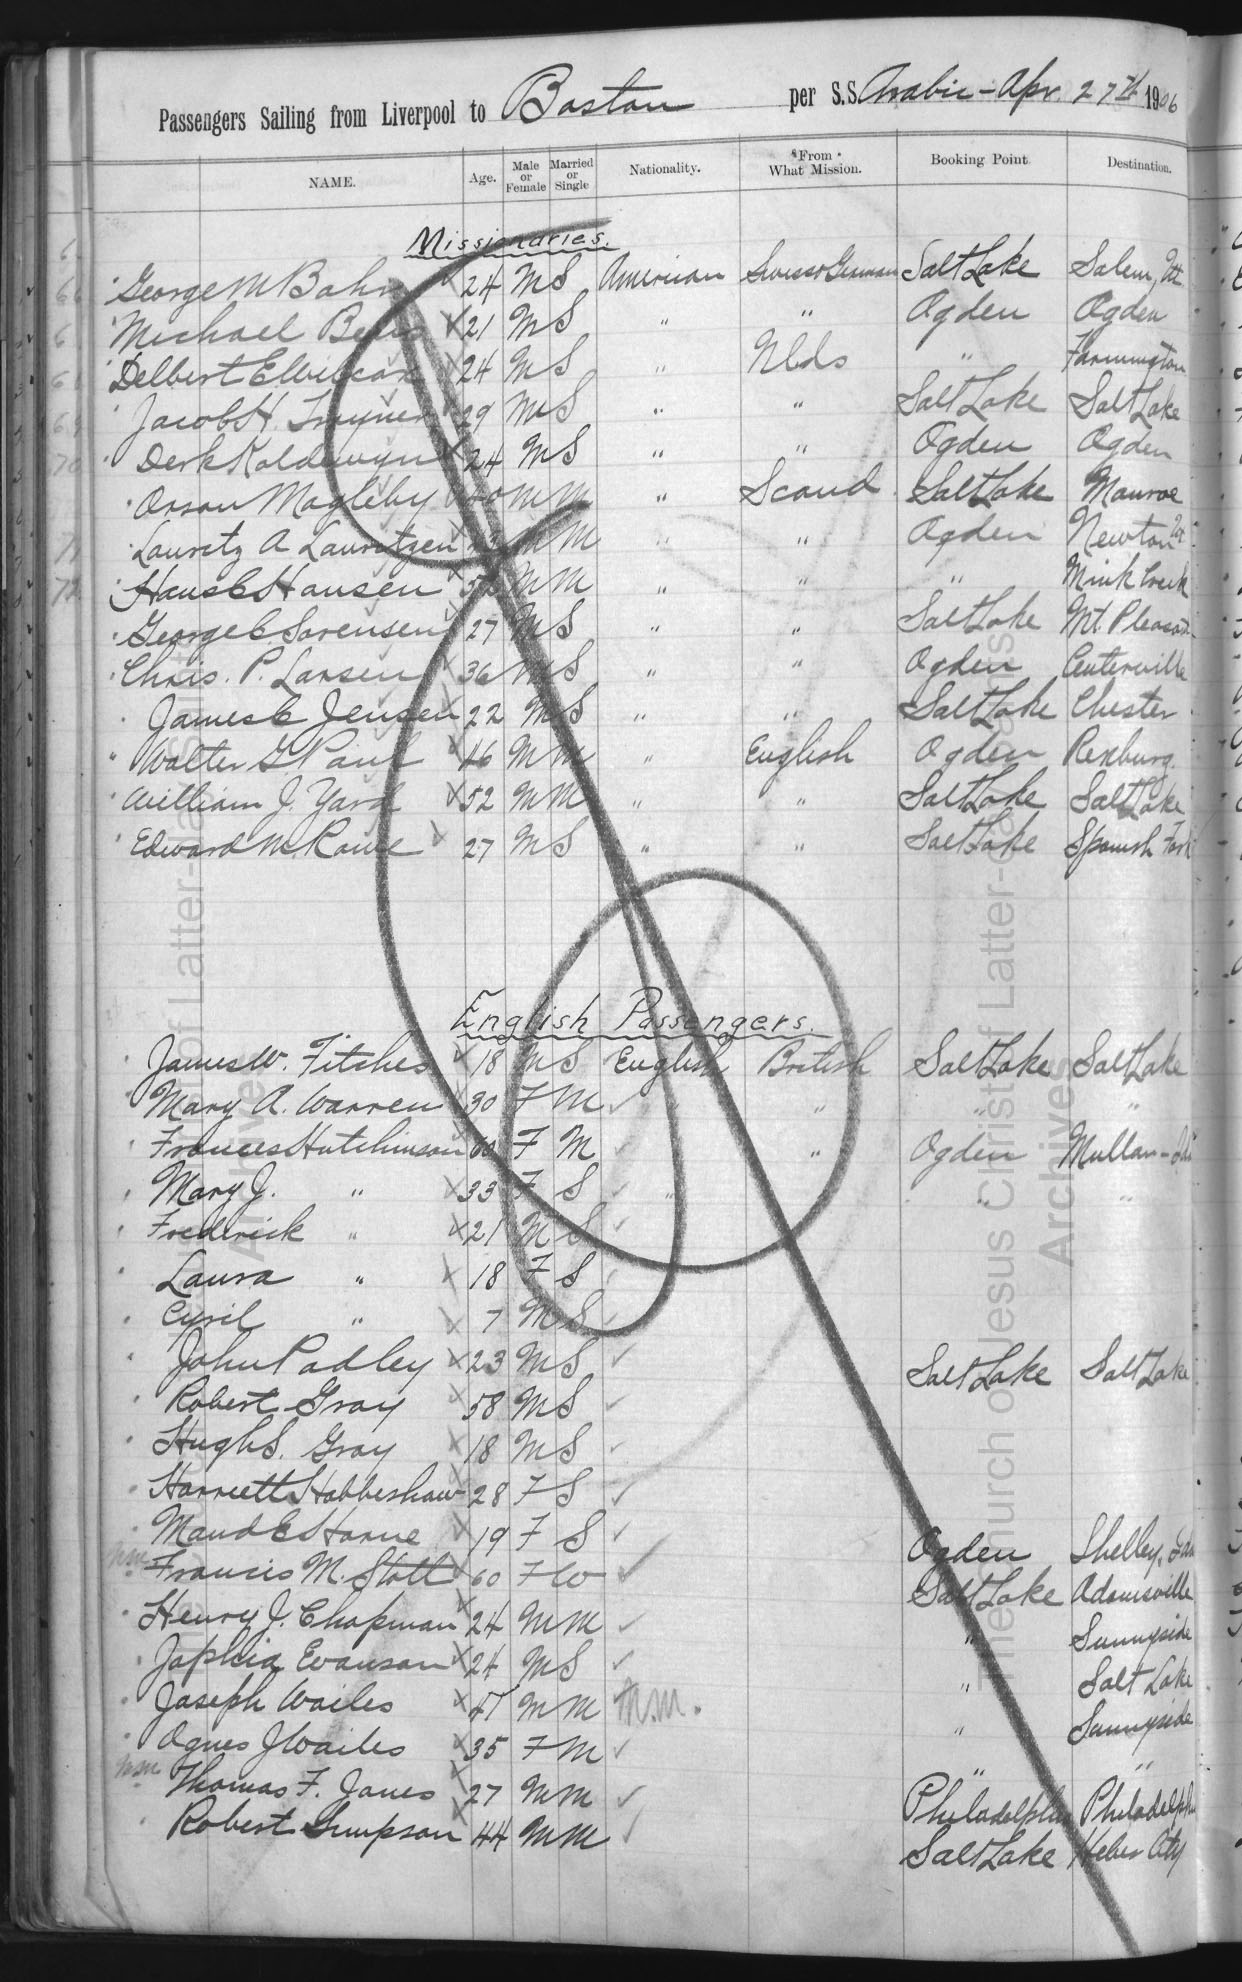 Passengers Sailing from Liverpool to Boston per S.S. Arabic - Apr. 27th 1906
NAME. Age. Male or Female Married or Single Nationality. From What Mission. Booking Point. Destination.
Missionaries.
George M Bahr 24 M S American Swiss & German Salt Lake Salem, Ut
Michael Beus 21 M S " " Ogden Ogden
Delbert E Wilcox 24 M S " Nlds " Farmington
Jacob H. Trayner 29 M S " " Salt Lake Salt Lake
Derk Koldewyn 24 M S " " Ogden Ogden
Orson Magleby 40 M M " Scand Salt Lake Monroe
Lauretz A Lauritzen M M " " Ogden Newton
Hans C Hansen M M " " " Mink Creek
George C Sorensen 27 M S " " Salt Lake Mt. Pleasant
Chris. P. Larsen 36 M S " " Ogden Centerville
James C Jensen 22 M S " " Salt Lake Chester
Walter G Paul 46 M M " English Ogden Rexburg.
William J. Yard 52 M M " " Salt Lake Salt Lake
Edward M Rowe 27 M S " " Salt Lake Spanish Fork
English Passengers.
James W. Fitches 18 M S English British Salt Lake Salt Lake
Mary A. Warren 30 F M " " " "
Frances Hutchinson 60 F M " Ogden Mullan - Ida
Mary J. " 33 F S " " "
Frederick " 21 M S
Laura " 18 F S
Cyril " 7 M S
John Padley 23 M S Salt Lake Salt Lake
Robert Gray 58 M S
Hugh S. Gray 18 M S
Harriett Habbeshaw 28 F S
Maud E Horne 19 F S Ogden Shelley, Ida
nm Francis M. Stott 60 F W Salt Lake Adamsville
Henry J. Chapman 24 M M " Sunnyside
Japhia Evanson 24 M S " Salt Lake
Joseph Wailes 47 M M N.M. " Sunnyside
Agnes J Wailes 35 F M " "
nm Thomas F. Jones 27 M M Philadelphia Philadelphia
Robert Simpson 44 M M Salt Lake Heber City
The Church of Jesus Christ of Latter-day Saints
Archives